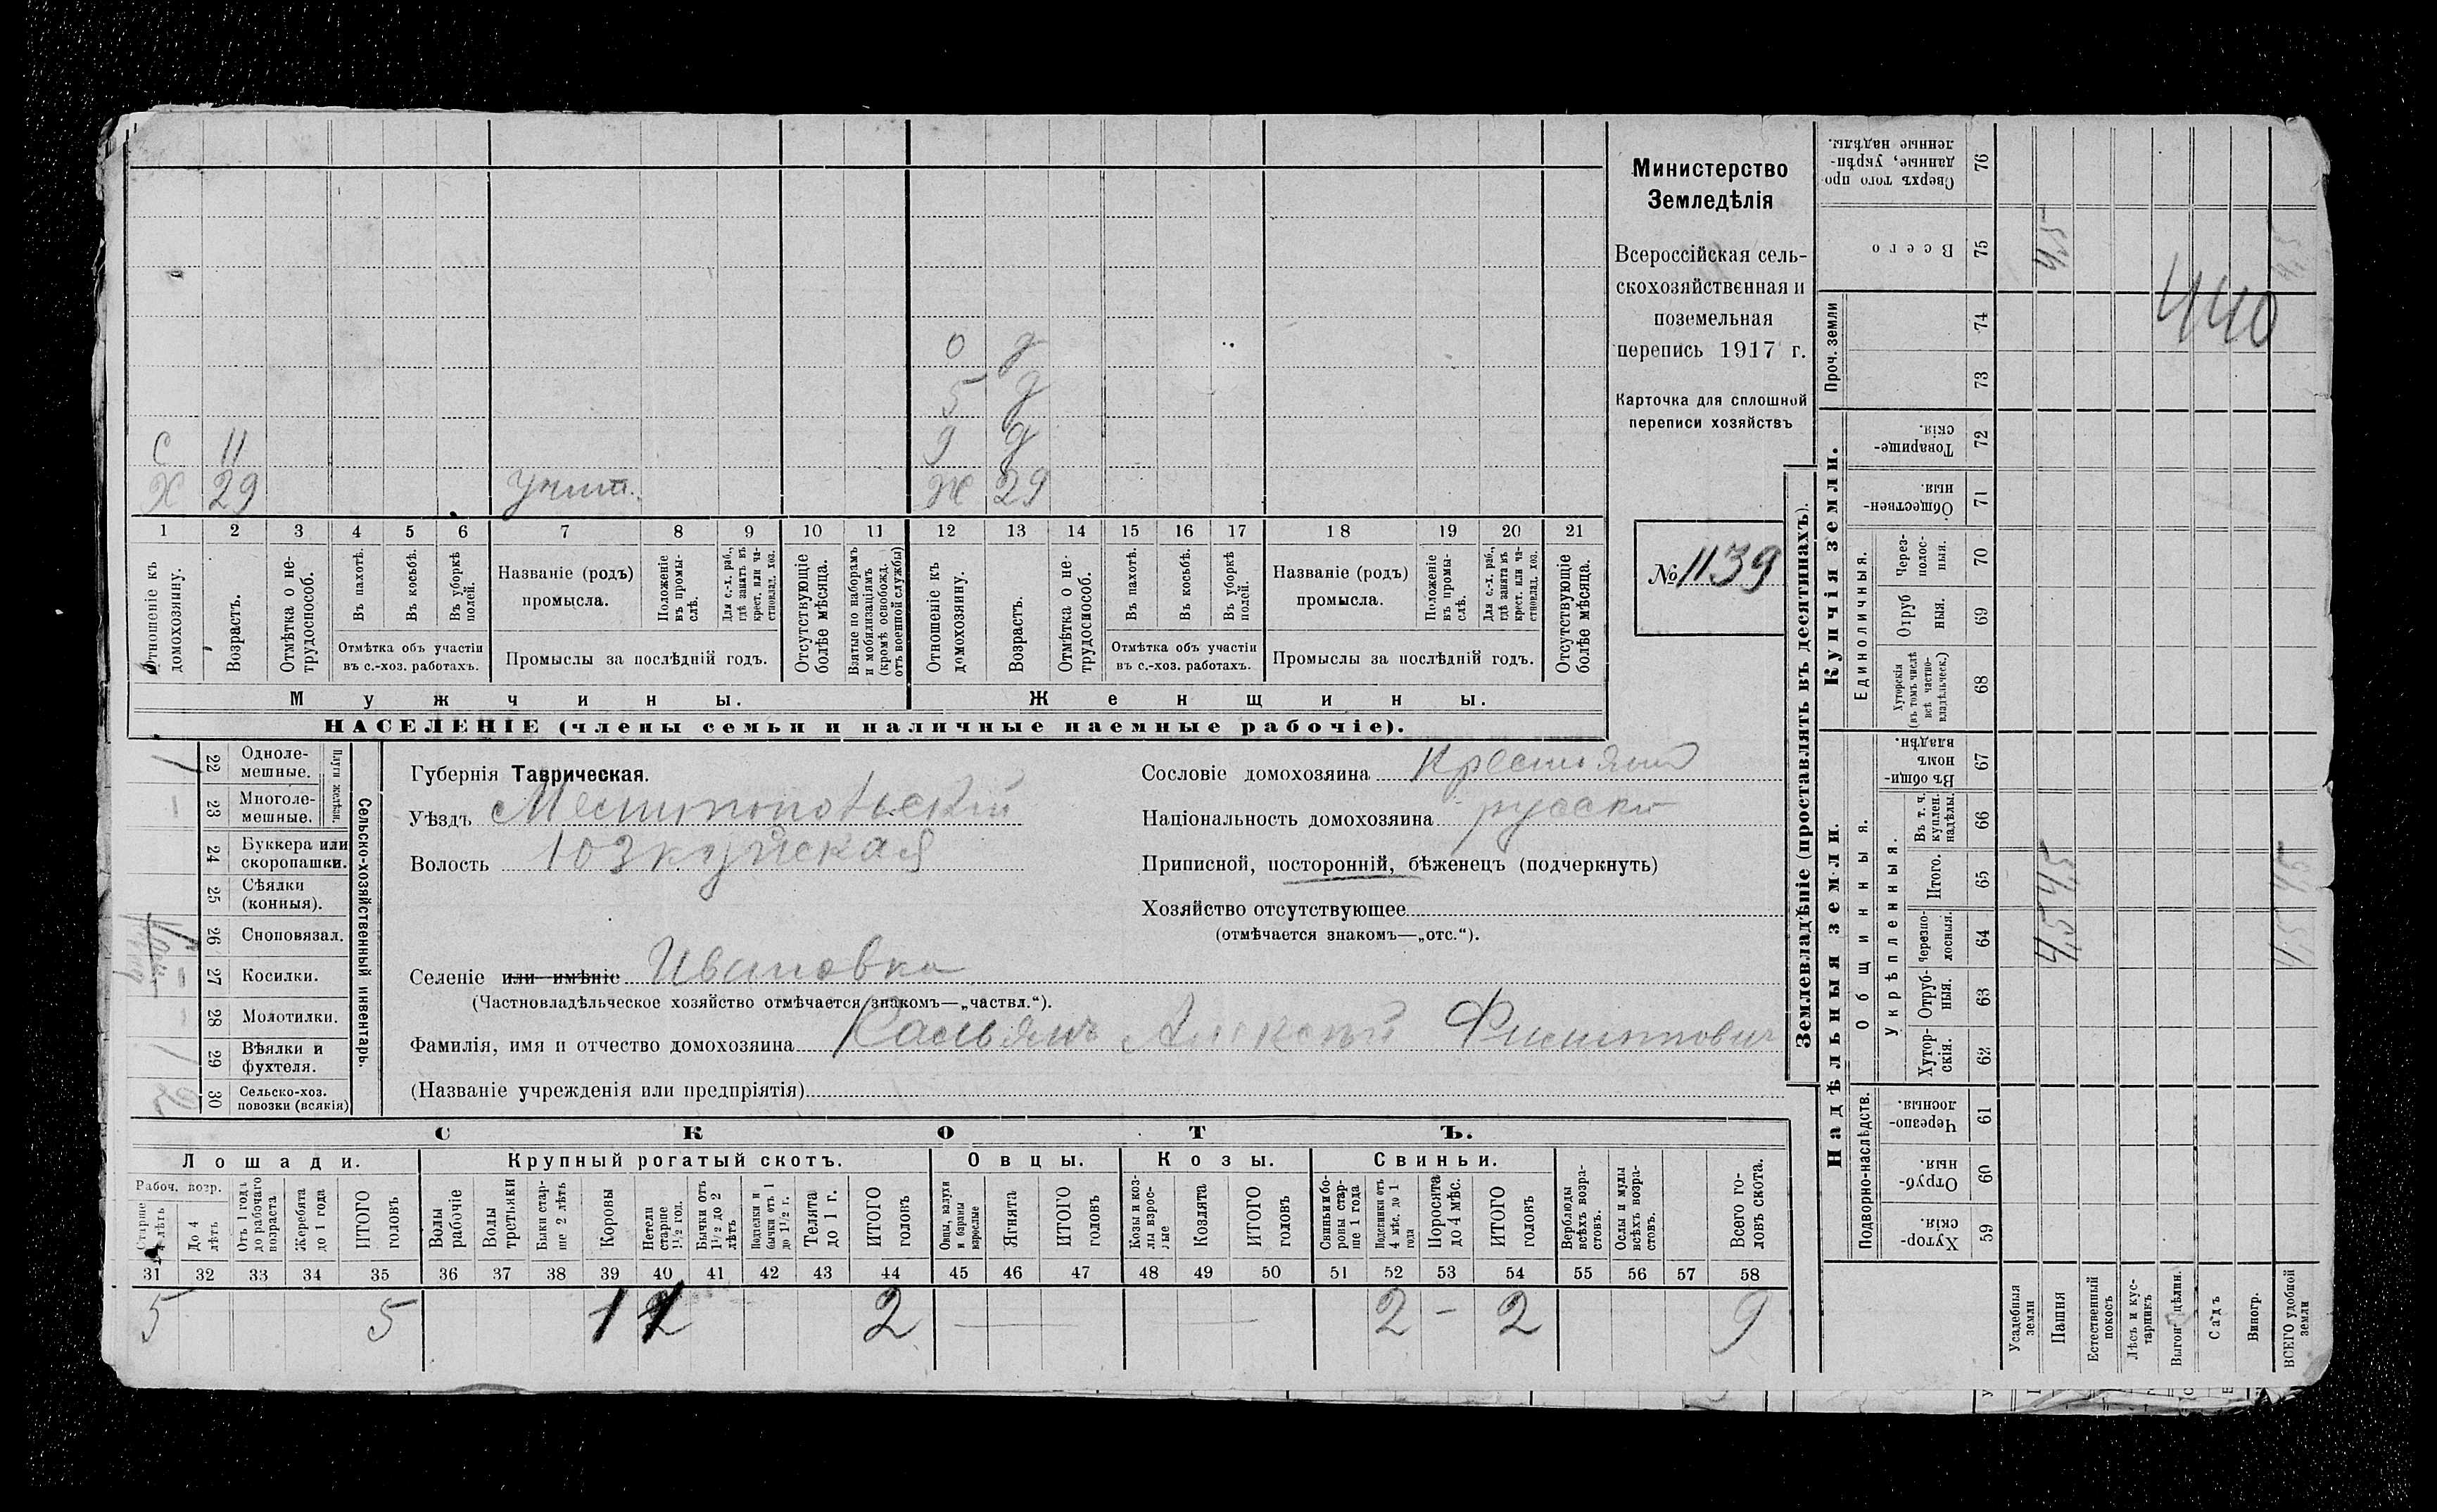 О д
5 д
д д
С 11
Х 29 Ж 29
1 2 3 4 5 6 7 8 9 10 11 12 13 14 15 16 17 18 19 20 21
Отношеніе къ домохозяину.
Возрастъ.
Отмѣтка о нетрудоспособ.
Въ пахотѣ.
Въ косьбѣ.
Въ уборкѣ полей.
Отмѣтка объ участіи
въ с.-хоз. работахъ.
Названіе (родъ)
промысла.
Положеніе въ промыслѣ.
Для с.-х. раб., гдѣ занятъ въ крест. или частновлад. хоз.
Промыслы за послѣдній годъ.
Отсутствующіе болѣе мѣсяца.
Взятые по наборамъ и мобилизаціямъ (кромѣ освобожд. отъ военной службы)
Отношеніе къ домохозяину.
Возрастъ.
Отмѣтка о нетрудоспособ.
Въ пахотѣ.
Въ косьбѣ.
Въ уборкѣ полей.
Отмѣтка объ участіи
въ с.-хоз. работахъ.
Названіе (родъ)
промысла.
Положеніе въ промыслѣ.
Для с.-х. раб., гдѣ занята въ крест. или частновлад. хоз.
Промыслы за послѣдній годъ.
Отсутствующіе болѣе мѣсяца.
Мужчины. Женщины.
НАСЕЛЕНІЕ (члены семьи и наличные наемные рабочіе).
Министерство
Земледѣлія
Всероссійская сель-
скохозяйственная и
поземельная
перепись 1917 г.
Карточка для сплошной
переписи хозяйствъ
№ 1139
Сельско-хозяйственный инвентарь.
Плуги желѣзн.
22 Одноле-
мешные. 1
23 Многоле-
мешные. –
24 Буккера или
скоропашки.
25 Сѣялки
(конныя).
26 Сноповязал.
27 Косилки.
28 Молотилки. –
29 Вѣялки и
фухтеля. 1
30 Сельско-хоз.
повозки (всякія) 2
Губернія Таврическая.
Уѣздъ Мелитопольскій
Волость Юзкуйская
Селеніе или имѣніе Ивановка
(Частновладѣльческое хозяйство отмѣчается знакомъ—„частвл.“).
Фамилія, имя и отчество домохозяина Касьянъ Алексей Филиппович
(Названіе учрежденія или предпріятія)
Сословіе домохозяина Крестьянин
Національность домохозяина русски
Приписной, посторонній, бѣженецъ (подчеркнуть)
Хозяйство отсутствующее
(отмѣчается знакомъ—„отс.“).
СКОТЪ.
Лошади. Крупный рогатый скотъ. Овцы. Козы. Свиньи.
Рабоч. возр.
Старше 4 лѣтъ
До 4 лѣтъ
Отъ 1 года до рабочаго возраста
Жеребята до 1 года
ИТОГО головъ
Волы рабочіе
Волы третьяки
Быки старше 2 лѣтъ
Коровы
Нетели старше 1½ год.
Бычки отъ 1½ до 2 лѣтъ
Подтелки и бычки отъ 1 до 1½ г.
Телята до 1 г.
ИТОГО головъ
Овцы, валухи и бараны взрослые
Ягнята
ИТОГО головъ
Козы и козлы взрослые
Козлята
ИТОГО головъ
Свиньи и бороны старше 1 года
Подсвинки отъ 4 мѣс. до 1 года
Поросята до 4 мѣс.
ИТОГО головъ
Верблюды всѣхъ возрастовъ.
Ослы и мулы всѣхъ возрастовъ.
Всего головъ скота.
31 32 33 34 35 36 37 38 39 40 41 42 43 44 45 46 47 48 49 50 51 52 53 54 55 56 57 58
5 5 1 1 2 — — 2 – 2 9
Землевладѣніе (проставлять въ десятинахъ).
Купчія земли.
Надѣльныя земли.
Сверхъ того проданные, укрѣпленные надѣлы. 76
Всего 75
Проч. земли 74 73
Товарищескія. 72
Общественныя. 71
Единоличныя.
Черезполосныя. 70
Отрубныя. 69
Хуторскія (въ томъ числѣ всѣ частновладѣльческ.) 68
Общинныя.
Въ общинномъ владѣн. 67
Укрѣпленныя.
Въ т. ч. куплен. надѣлы. 66
Итого. 65
Черезполосныя. 64
Отрубныя. 63
Хуторскія. 62
Подворно-наслѣдств.
Черезполосныя. 61
Отрубныя. 60
Хуторскія. 59
Усадебныя земли
Пашня 4,5 4,5 4,5
Естественный покосъ
Лѣсъ и кустарникъ
Выгон цѣлин.
Садъ
Виногр.
ВСЕГО удобной земли 4,5 4,5 4,5
440